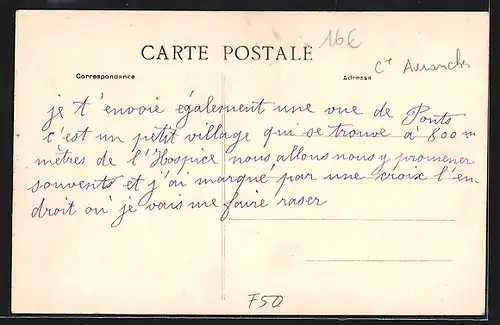 16€
CARTE POSTALE
Correspondance
Adresse
Ct Avranches
je t'envoie également une vue de Ponts
c'est un petit village qui se trouve à 800m
mètres de l'Hospice nous allons nous y promener
souvents et j'ai marqué par une croix l'en-
droit où je vais me faire raser
F50